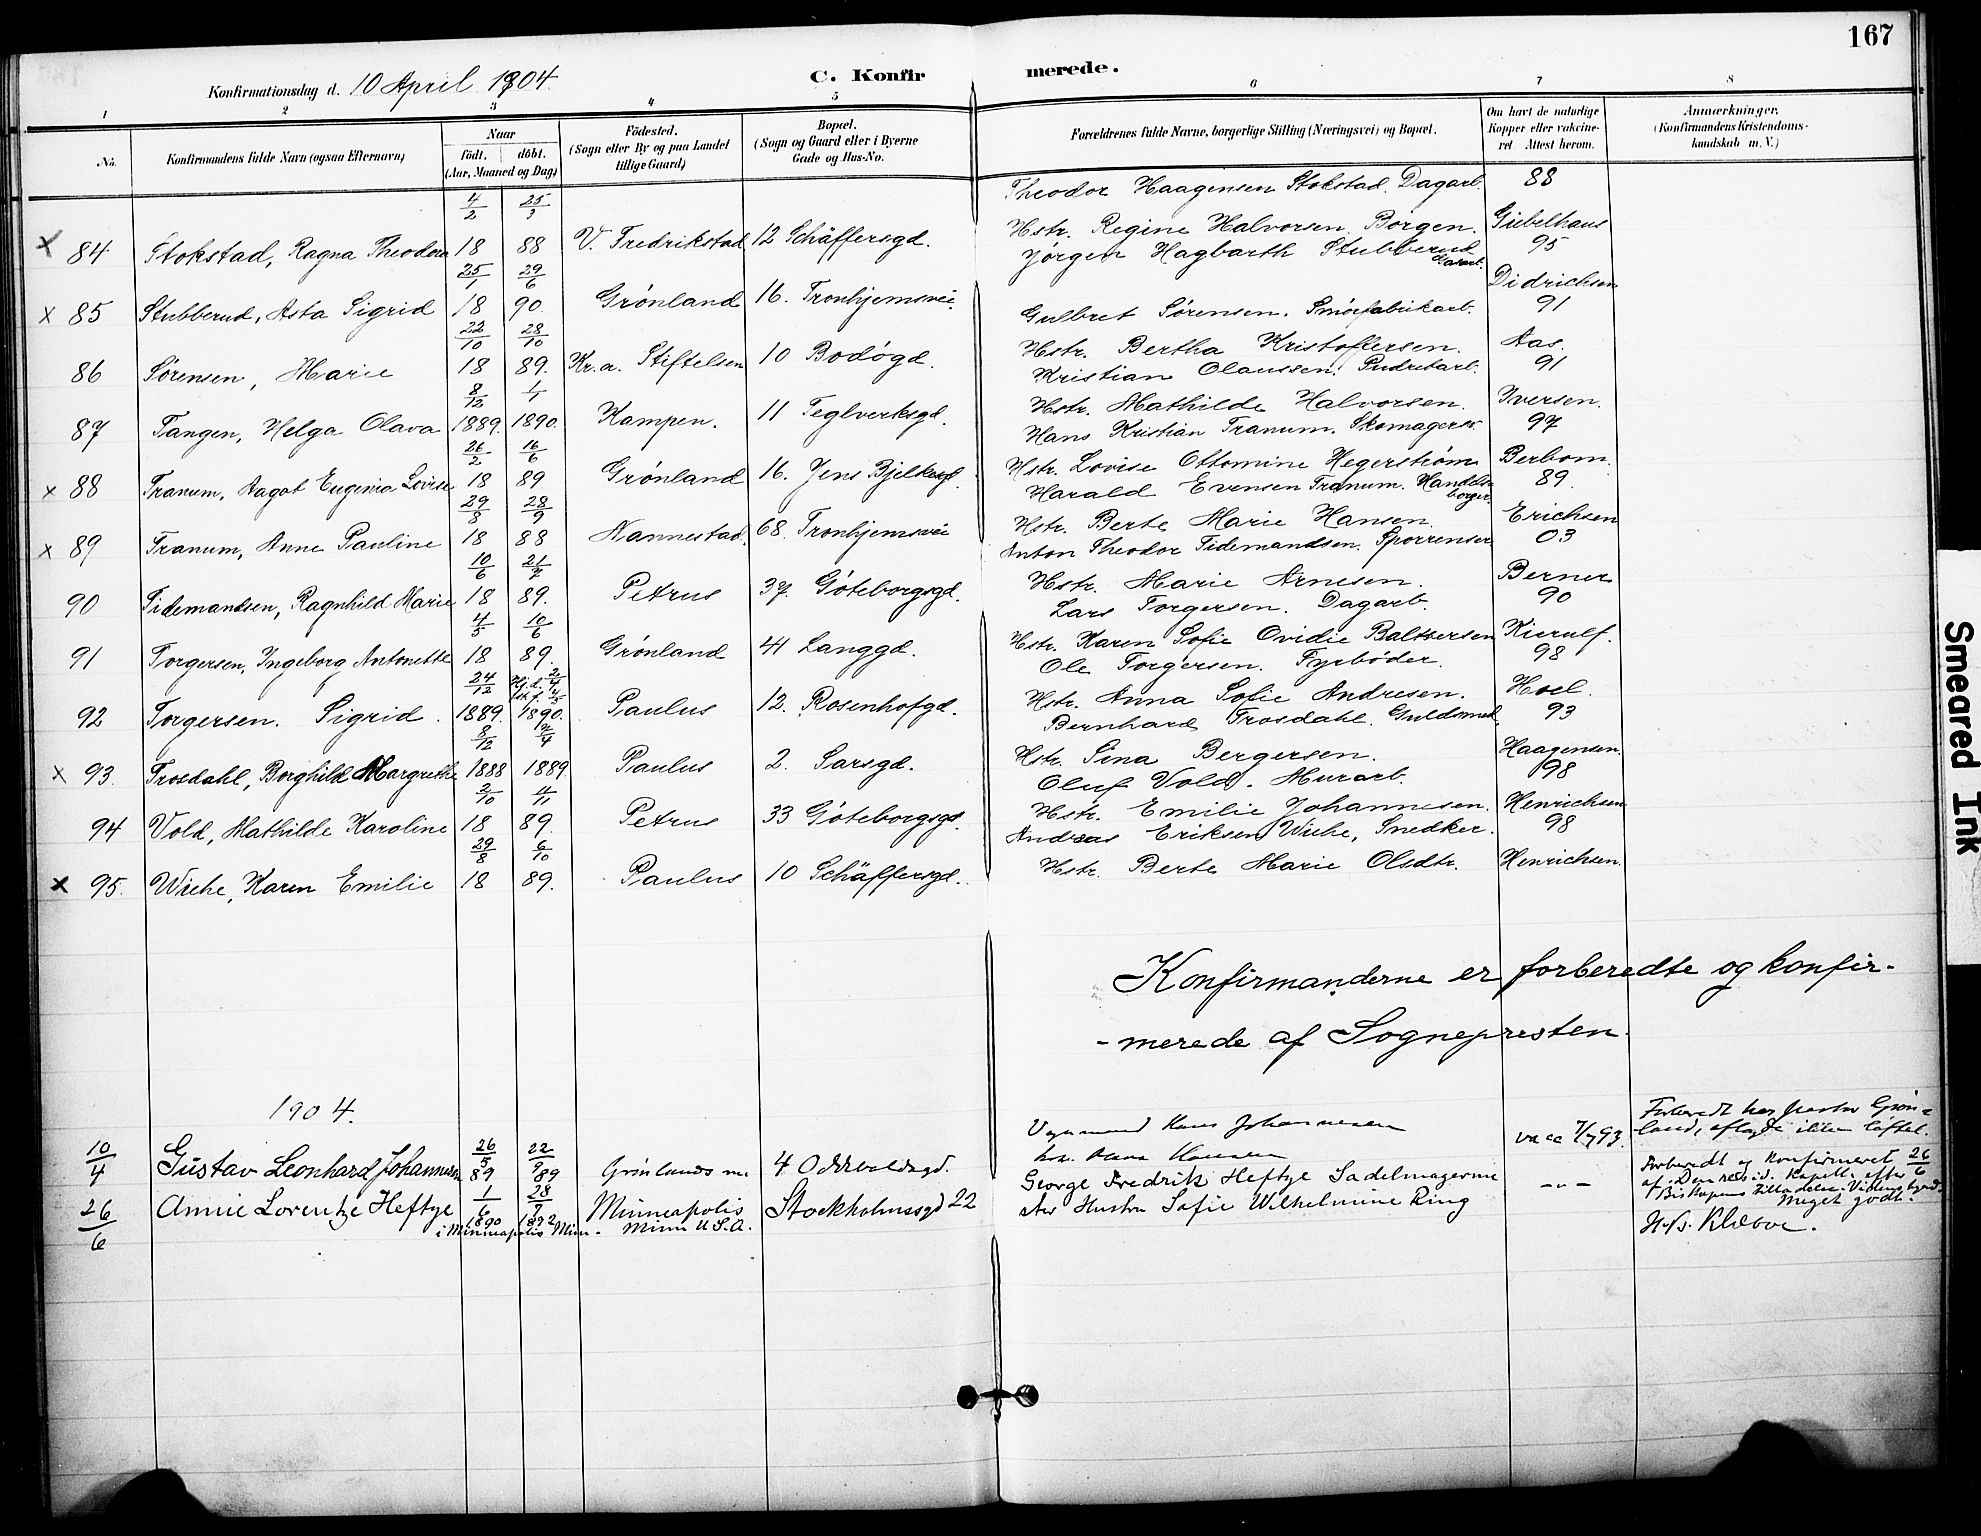 167
Konfirmationsdag d. 10 April 1904.
C. Konfirmerede.
1 2 3 4 5 6 7 8
No.
Konfirmandens fulde Navn (ogsaa Efternavn)
Naar
født. døbt.
(Aar, Maaned og Dag)
Fødested.
(Sogn eller By og paa Landet
tillige Gaard)
Bopæl.
(Sogn og Gaard eller i Byerne
Gade og Hus-No.
Forældrenes fulde Navne, borgerlige Stilling (Næringsvei) og Bopæl.
Om havt de naturlige
Kopper eller vakcine-
ret Attest herom.
Anmærkninger.
(Konfirmandens Kristendoms-
kundskab m. V.)
4/2 25/3 Theodor Haagensen Stokstad. Dagarb. 88
x 84 Stokstad, Ragna Theodora 18 88 V. Fredrikstad 12 Schäffersgd. Hstr. Regine Halvorsen Borgen. Giebelhaus
25/1 29/6 Jørgen Hagbarth Stubberud Dagarb. 95
x 85 Stubberud, Asta Sigrid 18 90. Grønland 16. Tronhjemsvei. Didrichsen
22/10 28/10 Gulbret Sørensen. Smørfabrikarb. 91
86 Sørensen, Marie 18 89. Kr.a. Stiftelsen 10 Bodøgd. Hstr. Bertha Kristoffersen. Aas.
8/12 1/1 Kristian Olaussen. Pudretarb. 91
87 Tangen, Helga Olava 1889. 1890. Kampen. 11 Teglverksgd. Hstr. Mathilde Halvorsen. Iversen.
26/2 16/6 Hans Kristian Tranum. Skomagersv. 97
x 88 Tranum, Aagot Eugenia Lovise 18 89 Grønland 16. Jens Bjelkesgd. Hstr. Lovise Ottomine Hegerstrøm Berbom.
29/8 28/9 Harald Evensen Tranum. Handelsborger. 89.
x 89 Tranum, Anne Pauline 18 88 Nannestad. 68. Tronhjemsvei Hstr. Berte Marie Hansen. Erichsen
10/6 21/7 Anton Theodor Tidemandsen. Sporrenser 03
90 Tidemandsen, Ragnhild Marie 18 89. Petrus 37. Gøteborgsgd. Hstr. Marie Arnesen. Berner
4/5 10/6 Lars Torgersen. Dagarb. 90
91 Torgersen, Ingeborg Antonette 18 89. Grønland 41 Langgd. Hstr. Karen Sofie Ovidie Baltzersen Kierulf.
24/12 Ole Torgersen. Fyrbøder. 98
92 Torgersen. Sigrid. 1889. 1890. Paulus 12. Rosenhofgd. Hstr. Anna Sofie Andresen. Hoel.
8/12 Bernhard Trosdahl. Guldsmed. 93
x 93. Trosdahl, Borghild Margrethe 1888 1889. Paulus 2. Sarsgd. Hstr. Sina Bergersen. Haagensen.
2/10 11/11 Oluf Vold. Murarb. 98
94 Vold, Mathilde Karoline 18 89. Petrus 33 Gøteborgsgd. Hstr. Emilie Johannesen. Henrichsen
29/8 6/10 Andreas Eriksen Wiche, Snedker. 98
x 95. Wiche, Karen Emilie 18 89. Paulus 10 Schäffersgd. Hstr. Berte Marie Olsdtr. Henrichsen.
Konfirmanderne er forberedte og konfir-
-merede af Sognepresten.
1904.
10/4 Gustav Leonhard Johannesen 26/5 89 22/9 89 Grønlands m. 4 Oddvaldsgd. Vognmand Hans Johannesen
Hansen
vacc 7/7 93. Forberedt hos pastor Grøn-
land, løftet.
26/6 Annie Lorentze Heftye 1/6 1890 28/7 1892 Minneapolis Stockholmsgd 22 George Fredrik Heftye Sadelmagersv
i Minneapolis Minn. Minn U.S.A. Hustru Sofie Wilhelmine Ring
-"-
Forberedt og Konfirmeret 26/6
af Kapell. efter
Biskopens Tilladelse.
Meget godt.
Klæboe.
Smeared Ink